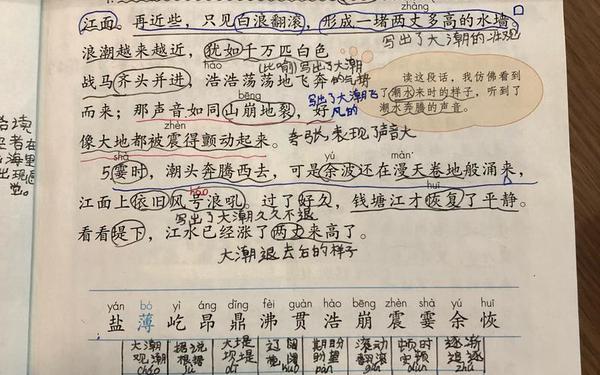 zhàng
江面。再近些，只见白浪翻滚，形成一堵两丈多高的水墙。
写出了大潮的壮观
浪潮越来越近，犹如千万匹白色
hào
(比喻)写出了大潮
战马齐头并进，浩浩荡荡地飞奔
的气势
bēng
写出了大潮飞
而来；那声音如同山崩地裂，好
风的
zhèn
像大地都被震得颤动起来。
夸张，表现了声音大
读这段话，我仿佛看到
了潮水来时的样子，听到了
潮水奔腾的声音。
shà yú màn
5霎时，潮头奔腾西去，可是余波还在漫天卷地般涌来，
háo huī
江面上依旧风号浪吼。过了好久，钱塘江才恢复了平静。
写出了大潮久久不退
看看堤下，江水已经涨了两丈来高了。
大潮退去后的样子
yán bó yì áng dǐng fèi guàn hào bēng zhèn shà yú huī
盐 薄 屹 昂 鼎 沸 贯 浩 崩 震 霎 余 恢
大潮 据说 大堤 期盼 滚动 顿时 逐渐
观潮 根据 堤坝 盼望 翻滚 追逐
cháo jù dī kuò pàn gǔn dùn zhú